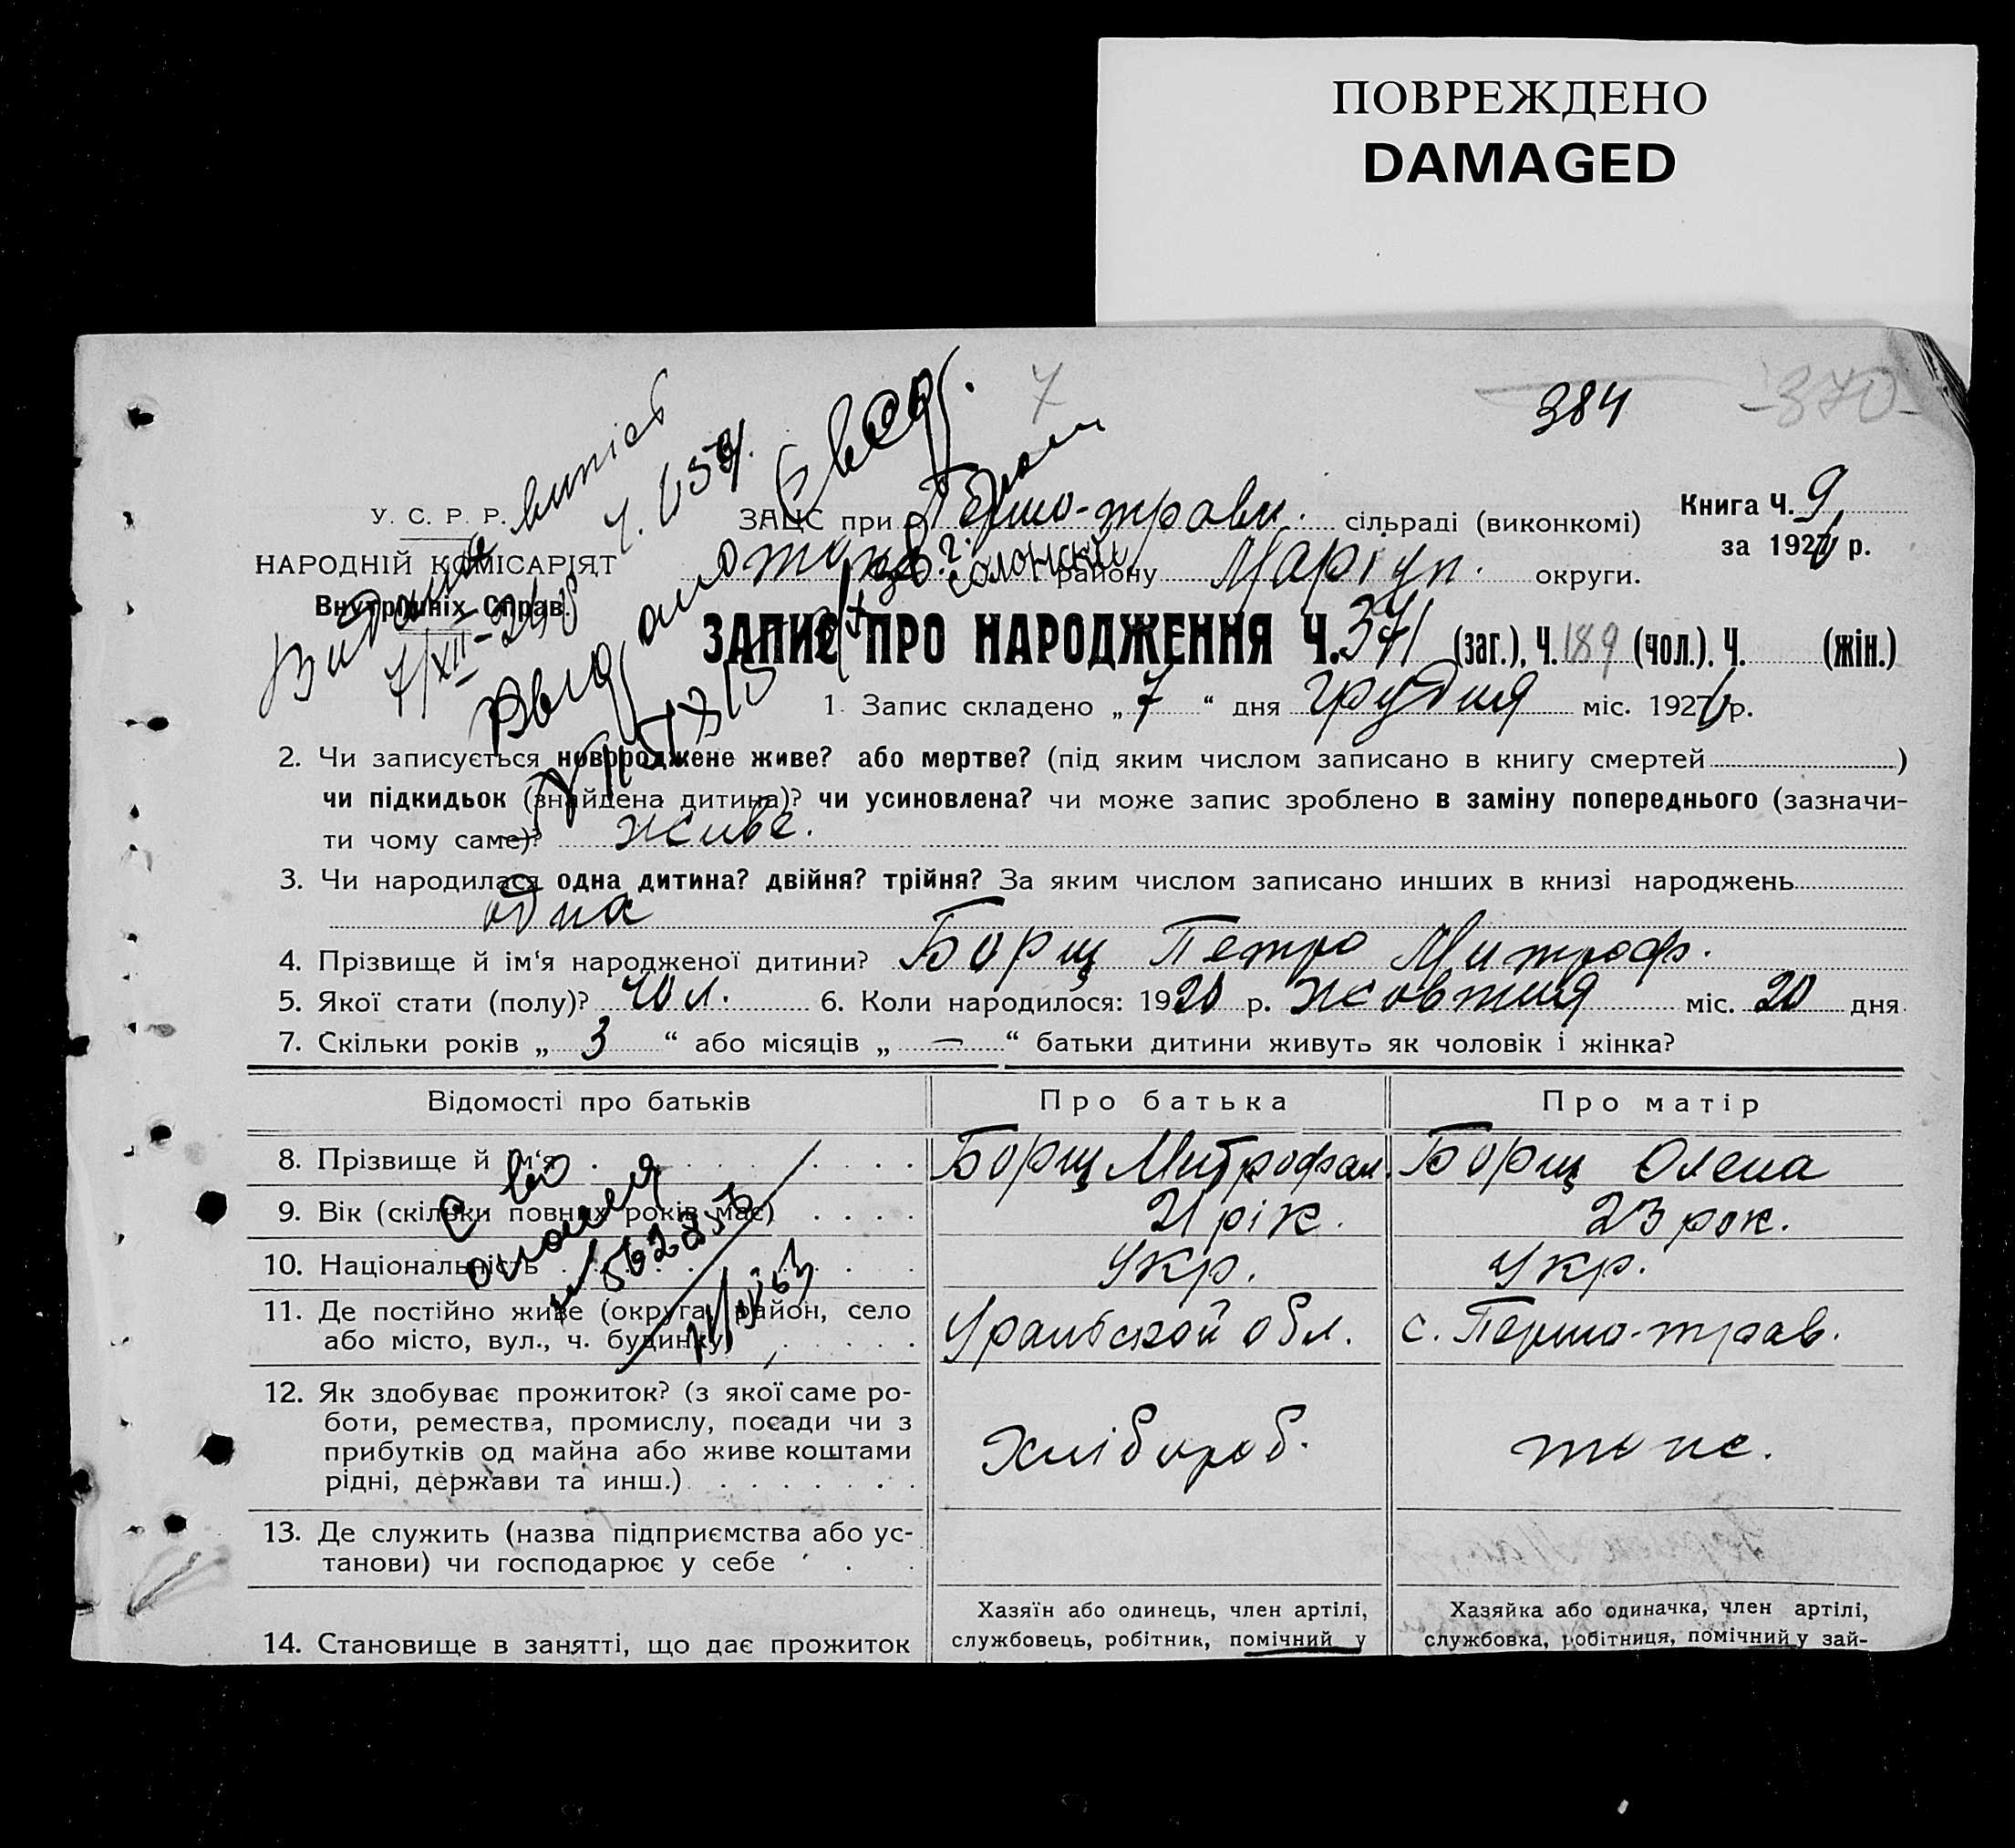 ПОВРЕЖДЕНО
DAMAGED
7
384
-370-
Видана випись
7/XII-26 р Ч. 659.
У. С. Р. Р.
НАРОДНІЙ КОМІСАРІЯТ
Внутрішніх Справ.
ЗАЦС при Першо-травн. сільраді (виконкомі)
району Маріуп. округи.
Книга Ч. 9
за 1926 р.
ЗАПИС ПРО НАРОДЖЕННЯ Ч. 371 (заг.), Ч. 189 (чол.). Ч. (жін.)
1. Запис складено „ 7 “ дня грудня міс. 1926 р.
2. Чи записується новороджене живе? або мертве? (під яким числом записано в книгу смертей )
чи підкидьок (знайдена дитина)? чи усиновлена? чи може запис зроблено в заміну попереднього (зазначи-
ти чому саме)? живе.
3. Чи народилася одна дитина? двійня? трійня? За яким числом записано инших в книзі народжень
одна
4. Прізвище й ім‘я народженої дитини? Борщ Петро Митроф.
5. Якої стати (полу)? чол. 6. Коли народилося: 1920 р. жовтня міс. 20 дня
7. Скільки років „ 3 “ або місяців „ — “ батьки дитини живуть як чоловік і жінка?
Відомості про батьків Про батька Про матір
8. Прізвище й ім‘я Борщ Митрофан. Борщ Олена
9. Вік (скільки повних років має) 21 рік. 23 рок.
10. Національність Укр. Укр.
11. Де постійно живе (округа, район, село
або місто, вул., ч. будинку) Уральской обл. с. Першо-трав.
12. Як здобуває прожиток? (з якої саме ро-
боти, ремества, промислу, посади чи з
прибутків од майна або живе коштами
рідні, держави та инш.) Хлібороб. тоже.
13. Де служить (назва підприємства або ус-
танови) чи господарює у себе
14. Становище в занятті, що дає прожиток
Хазяїн або одинець, член артілі,
службовець, робітник, помічний у
Хазяйка або одиначка, член артілі,
службовка, робітниця, помічний у зай-